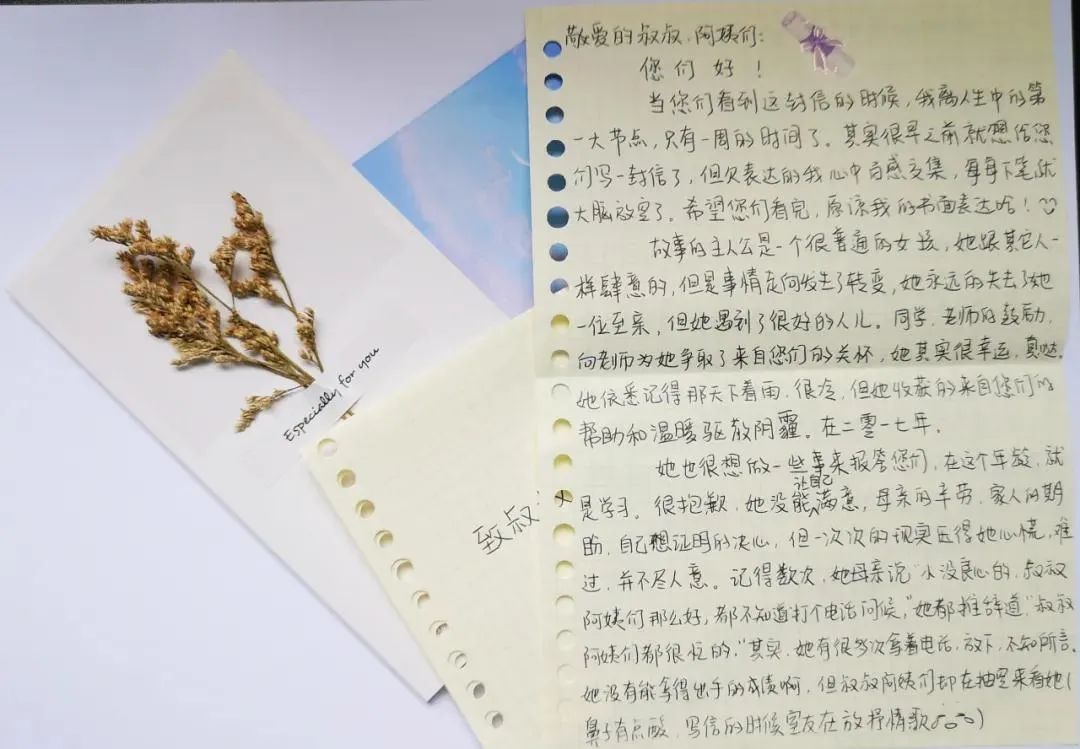 敬爱的叔叔、阿姨们:
您们好!
当您们看到这封信的时候,我离人生中的第
一大节点,只有一周的时间了。其实很早之前就想给您
们写一封信了,但欠表达的我心中百感交集,每每下笔就
大脑放空了。希望您们看完,原谅我的书面表达哈!
故事的主人公是一个很普通的女孩,她跟其它人一
样肆意的,但是事情走向发生了转变,她永远的失去了她
一位至亲,但她遇到了很好的人儿。同学、老师的鼓励,
向老师为她争取了来自您们的关怀,她其实很幸运,真哒。
她依悉记得那天下着雨、很冷,但她收获的来自您们的
帮助和温暖驱散阴霾。在二零一七年.
她也很想做一些事来报答您们,在这个年龄,就
是学习。很抱歉,她没能让自己满意,母亲的辛劳、家人的期
盼、自己想证明的决心,但一次次的现实压得她心慌,难
过,并不尽人意。记得数次,她母亲说"小没良心的,叔叔
阿姨们那么好,都不知道打个电话问候,"她都推辞道"叔叔
阿姨们都很忙的,"其实,她有很多次拿着电话,放下,不知所言。
她没有能拿得出手的成绩啊,但叔叔阿姨们却在抽空来看她(
鼻子有点酸,写信的时候室友在放抒情歌)
致叔
Especially for you